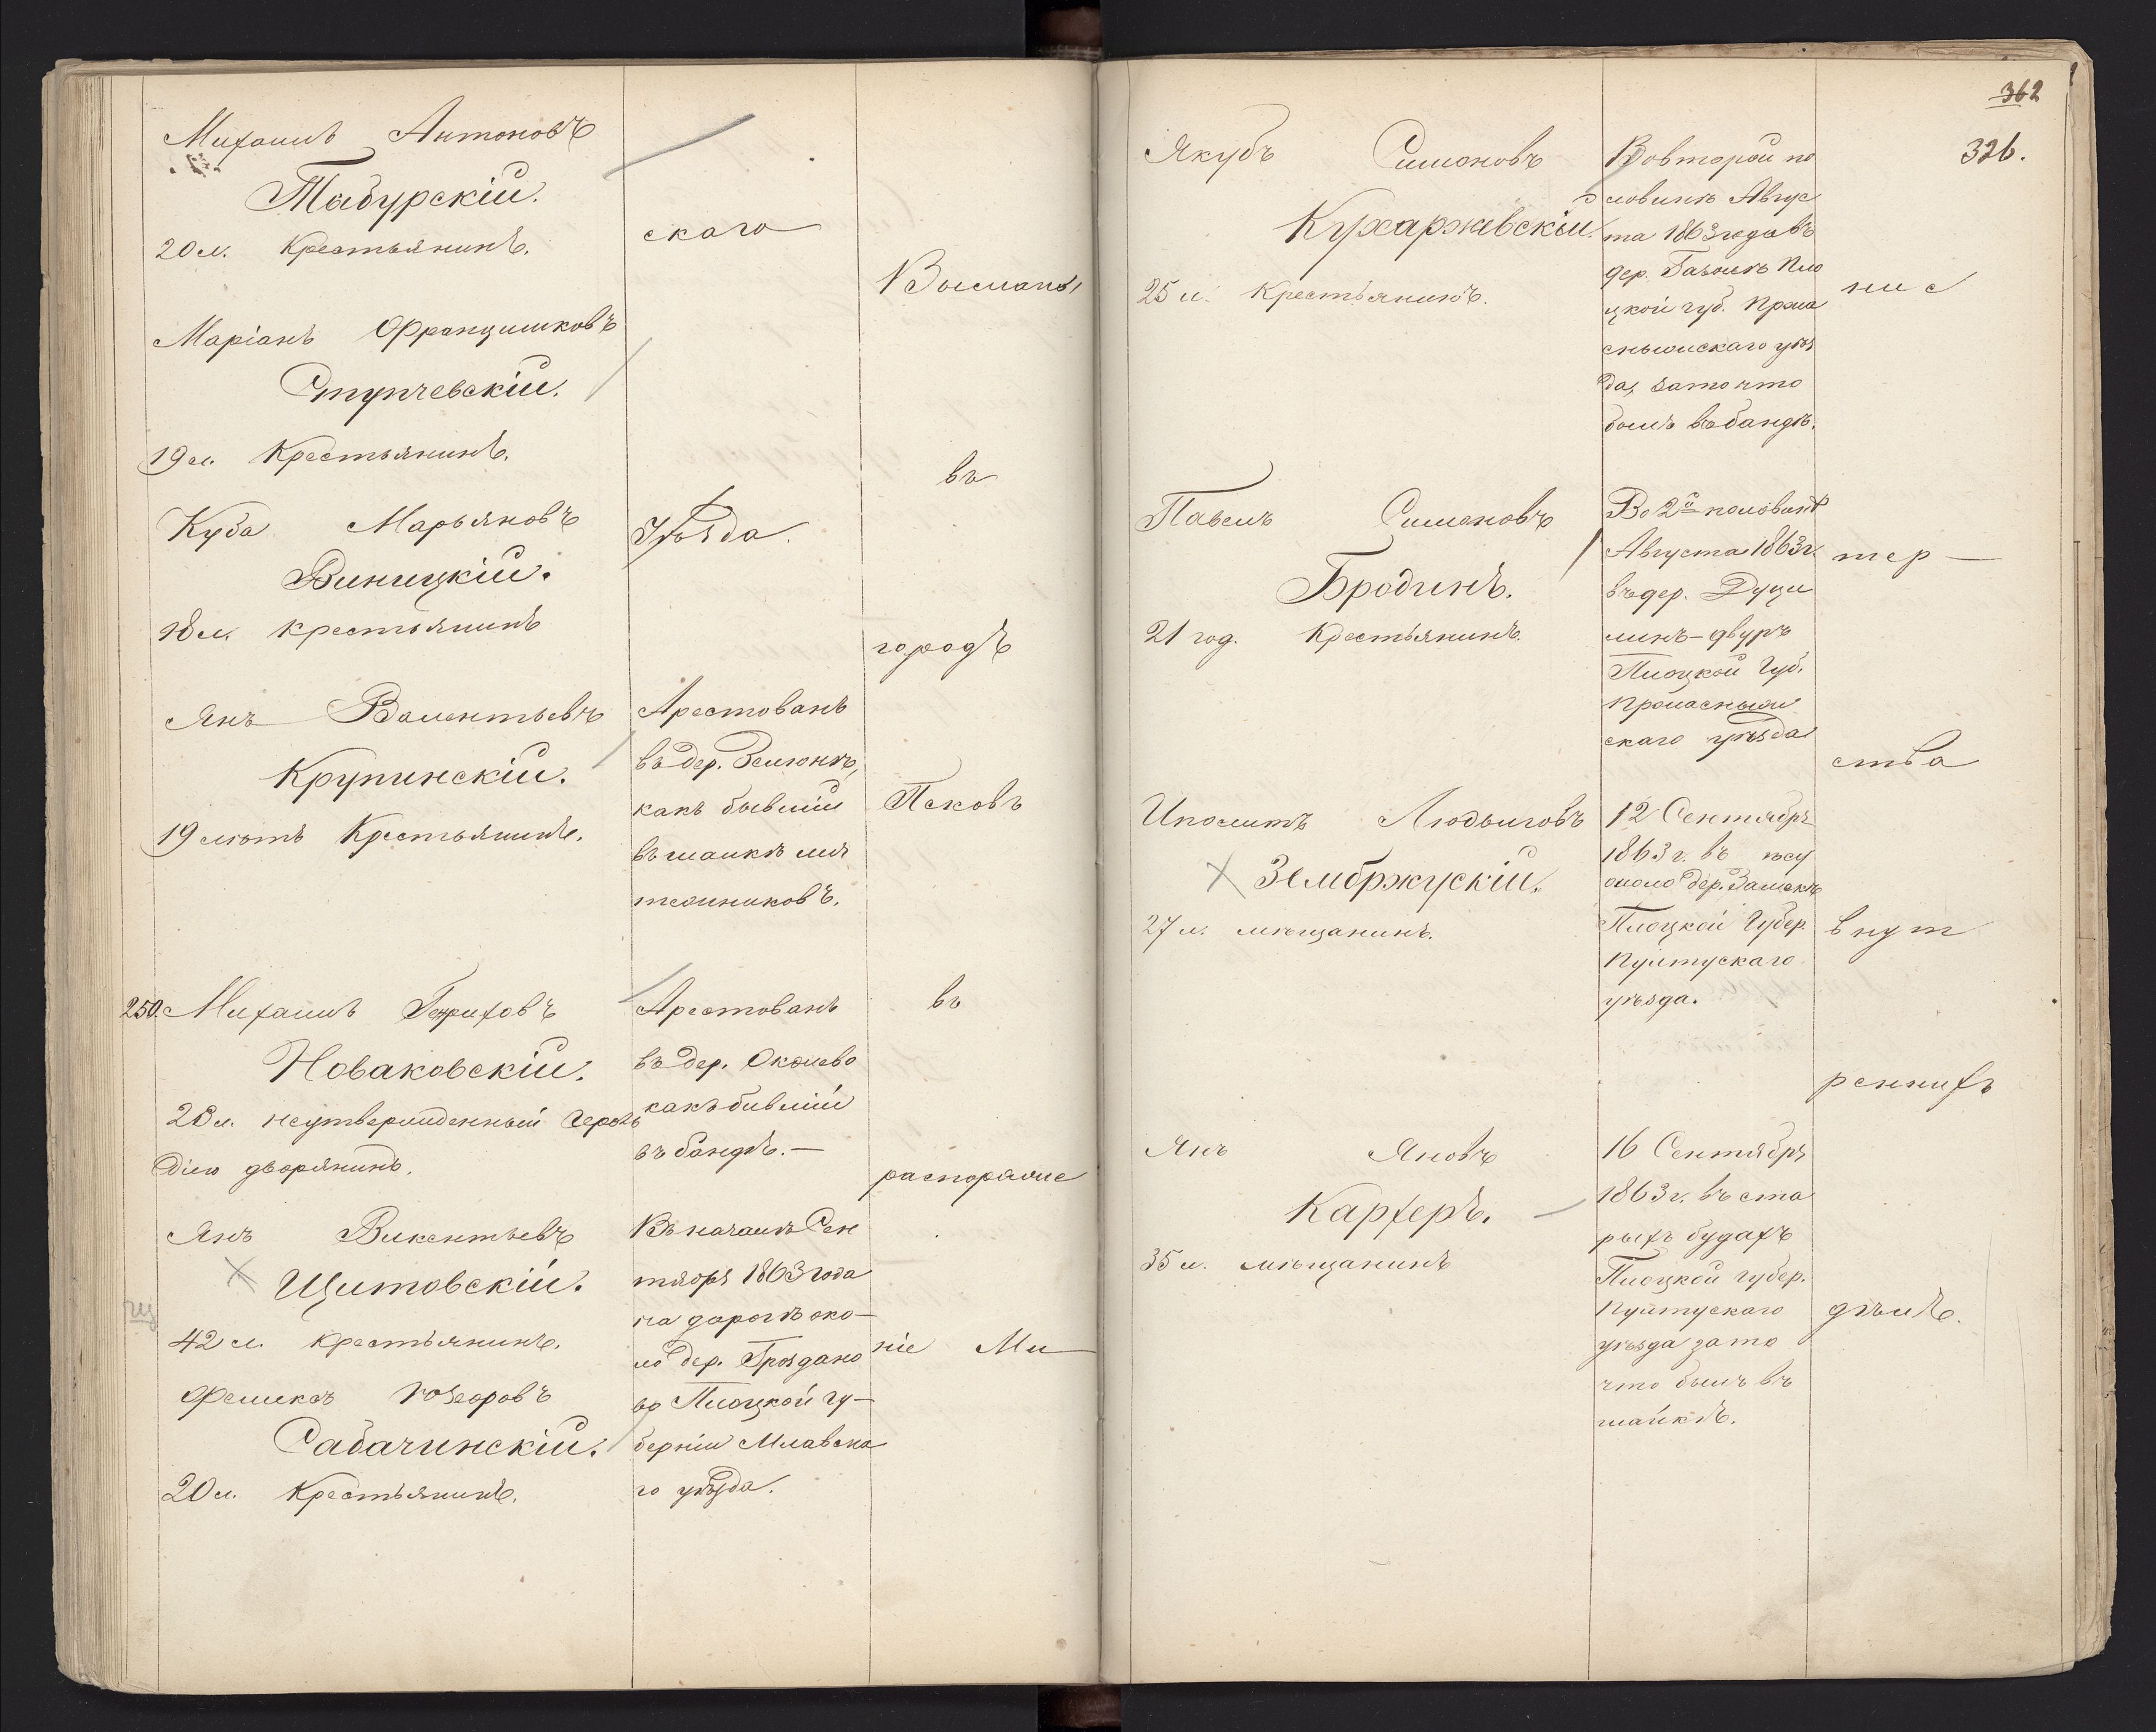 Михаилъ Антоновъ
Табурскій.
20 л. Крестьянинъ.
Маріанъ Францишковъ
Ступчевскій.
19 л. Крестьянинъ.
Куба Марьяновъ
Виницкій.
крестьянинъ
Янъ Валентьевъ
Крупинскій.
19 лѣтъ Крестьянинъ.
250. Михаилъ
Новаковскій.
28 л. неутвержденный Герольдіею
дворянинъ.
Янъ Викентьевъ
Щитовскій.
42 л. крестьянинъ.
Феликсъ Юзефовъ
Сабачинскій.
20 л. Крестьянинъ.
скаго
Уѣзда.
Арестованъ
въ дер. Зелюнѣ,
какъ бывшій
въ шайкѣ мя
тежниковъ.
Арестованъ
въ дер.
какъ бывшій
въ бандѣ. —
Въ началѣ Сен
тября 1863 года
на дорогѣ око-
ло дер.
во Плоцкой гу-
берніи Млавска
го уѣзда.
Высланы
въ
городъ
Псковъ
въ
распоряже
ніе Ми
362
326.
Якубъ Симоновъ
Кухаржевскій.
25 л. Крестьянинъ.
Павелъ Симоновъ
Бродинъ.
21 год. Крестьянинъ.
Иполитъ Людвиговъ
Зембржускій.
27 л. мѣщанинъ.
Янъ Яновъ
Карферъ.
35 л. мѣщанинъ
Во второй по
ловинѣ Авгус
та 1863 года въ
дер. Пло
цкой губ. Праса
снышскаго уѣз
да, за то что
былъ въ бандѣ.
Во 2й половинѣ
Августа 1863 г.
въ дер. Дуци
минъ-двуръ
Плоцкой Губ.
скаго уѣзда
12 Сентября
1863 г. въ лѣсу
около дер.
Плоцкой Губер.
Пултускаго
уѣзда.
16 Сентября
1863 г. въ ста
рыхъ будахъ
Плоцкой губер.
Пултускаго
уѣзда за то
что былъ въ
шайкѣ.
нис
тер —
ства
внут
реннихъ
дѣлъ.